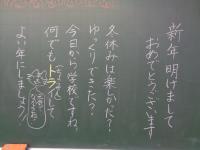 新年明けまして
おめでとうございます
冬休みは楽しかった?
ゆっくりできた?
今日から学校ですね。
何でもトライして
よい年にしましょう!